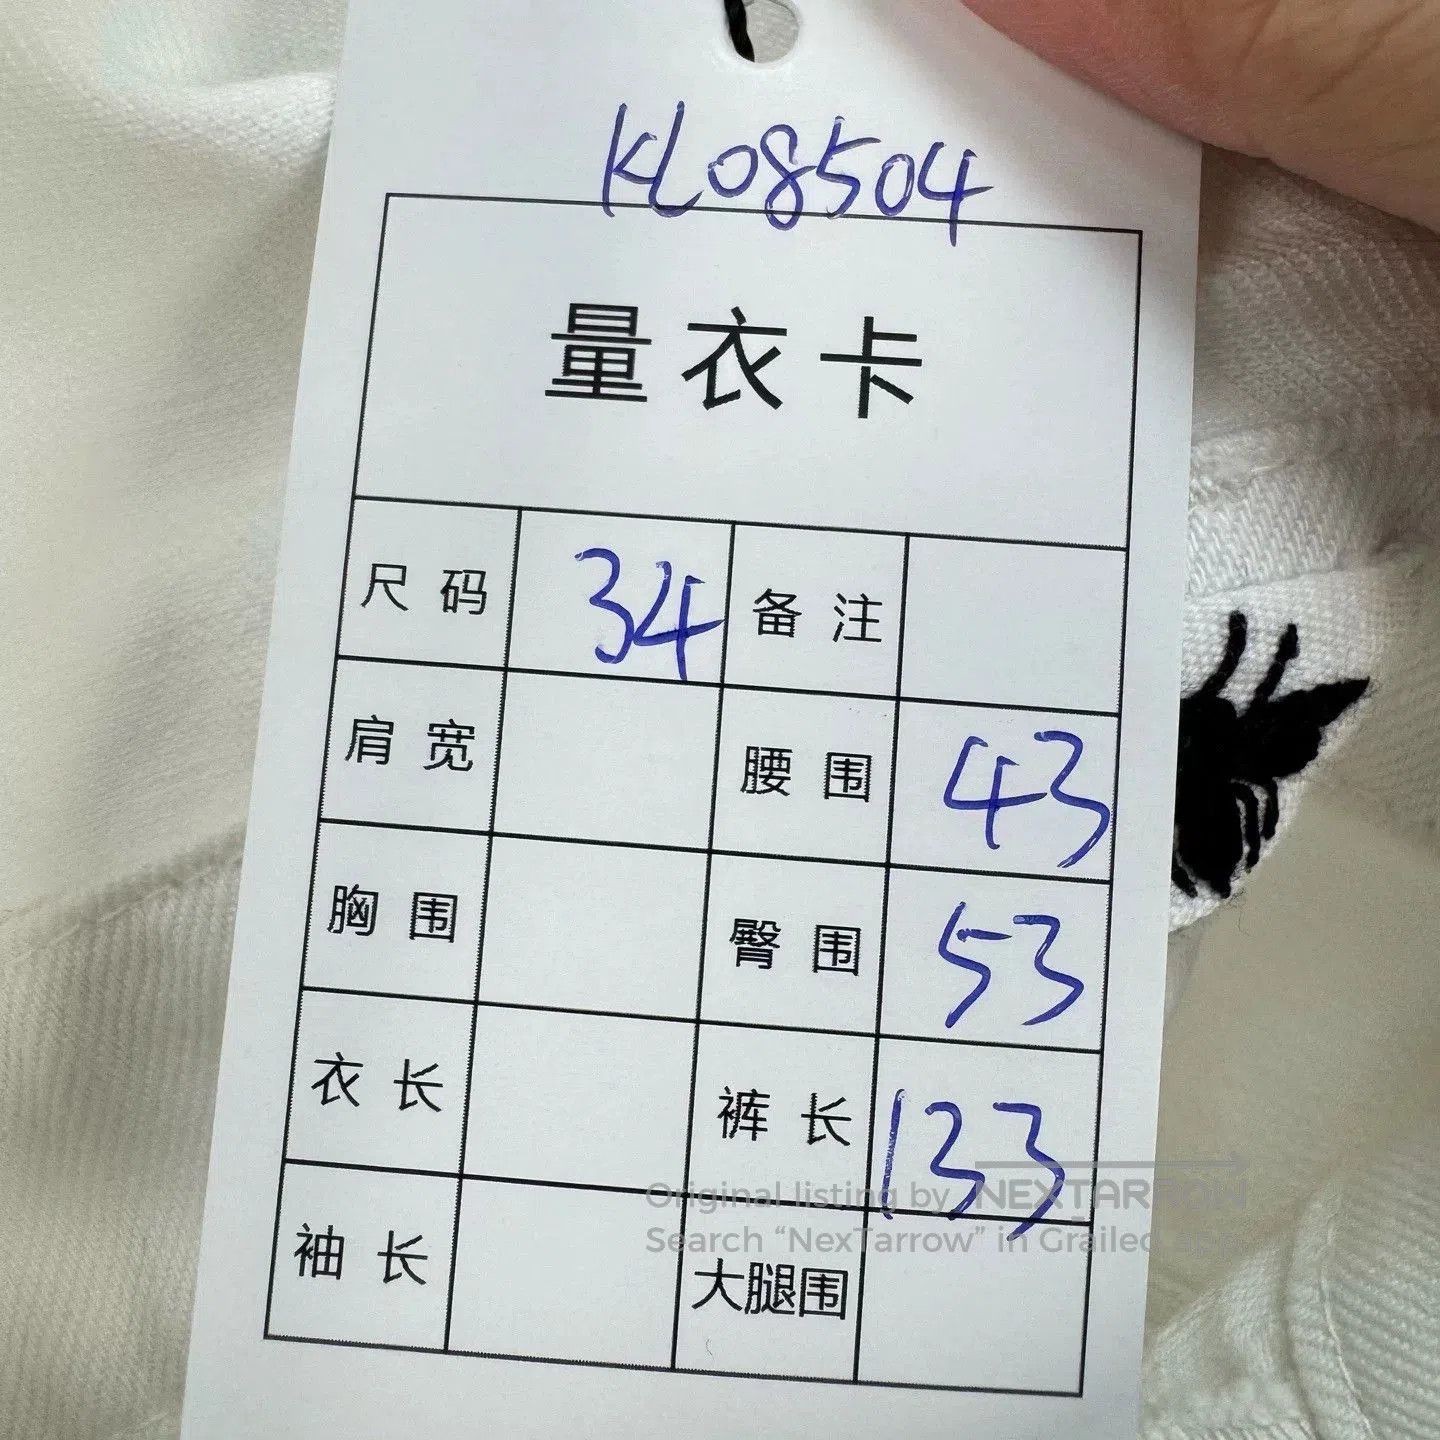 KL08504
量衣卡
尺码 34 备注
肩宽 腰围 43
胸围 臀围 53
衣长 裤长 133
袖长 大腿围
Original listing by NEXTARROW
Search “NexTarrow” in Grailed app